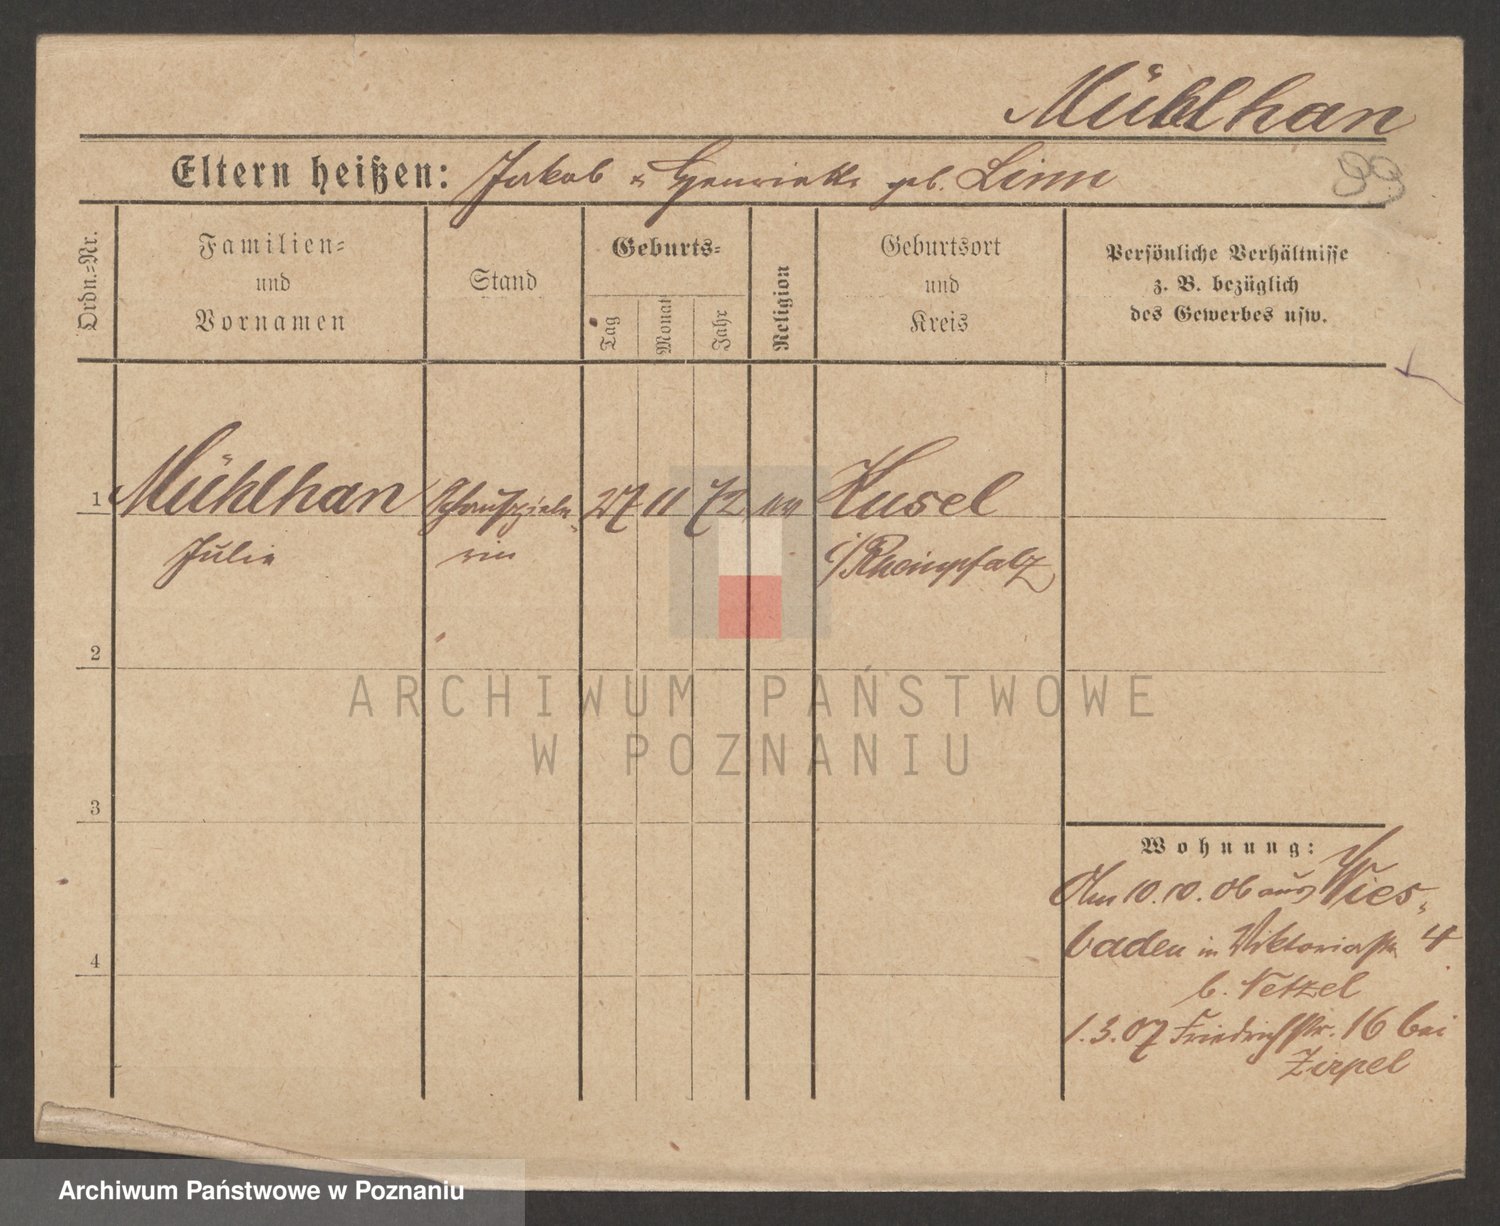 Mühlhan
Eltern heißen: Jakob u Henriette geb. Linn
33
Ordn.=Nr.
Familien=
und
Vornamen
Stand
Geburts=
Tag
Monat
Jahr
Religion
Geburtsort
und
Kreis
Persönliche Verhältnisse
z. B. bezüglich
des Gewerbes usw.
1 Mühlhan Schauspiele= 27 11 72 Kusel
Julie rin i/Rheinpfalz
2
ARCHIWUM PAŃSTWOWE
W POZNANIU
3
Wohnung:
Am 10.10.06 aus Wies=
baden in Viktoriastr. 4
4
b. Netzel
1.3.07 Friedrichstr. 16 bei
Zirpel
Archiwum Państwowe w Poznaniu